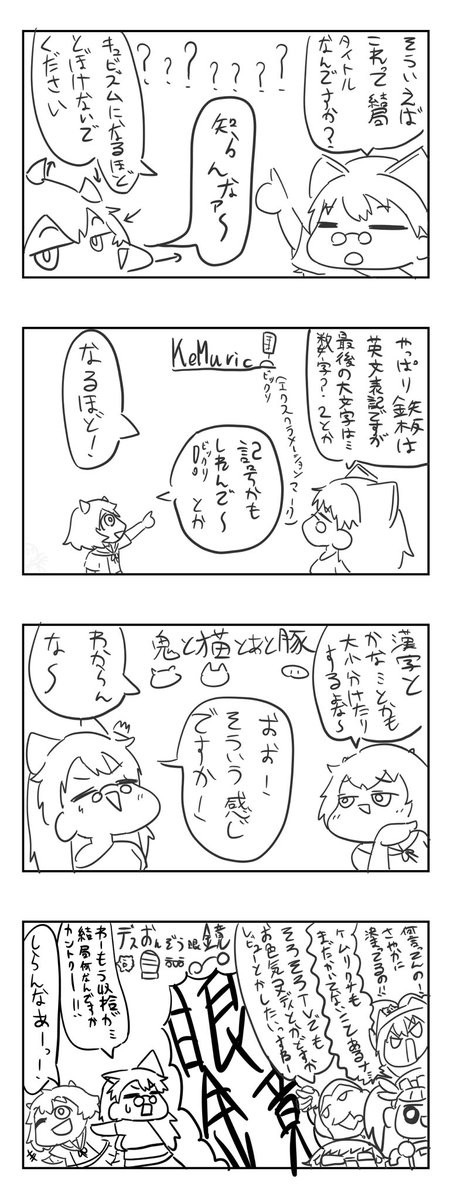 そういえば
これって結局
タイトル
なんですか?
???????
知らんなァ〜
キュビズムになるほど
とぼけないで
ください
やっぱり鉄板は
英文表記ですが
最後の大文字は…
数字?・2とか
KeMuric
ビックリ
(エクスクラメーションマーク)
記号かも
しれんで〜
ビックリ
とか
なるほど!
漢字と
かな…とかも
大小分けたり
するよな〜
鬼と猫とおと豚
おお!
そういう感じ
ですかー!
わからん
な〜
何言ってんの!
さやかに
ケムリクサも
まだたかってないってあるナシ…
そろそろテレビでも
お色気コメディとかですか
レビューとかしたいっすね!
眼鏡
デスおんぞう眼鏡
わーもう収拾が…
結局何なんですか
カントクー!!
しらんなあーっ!